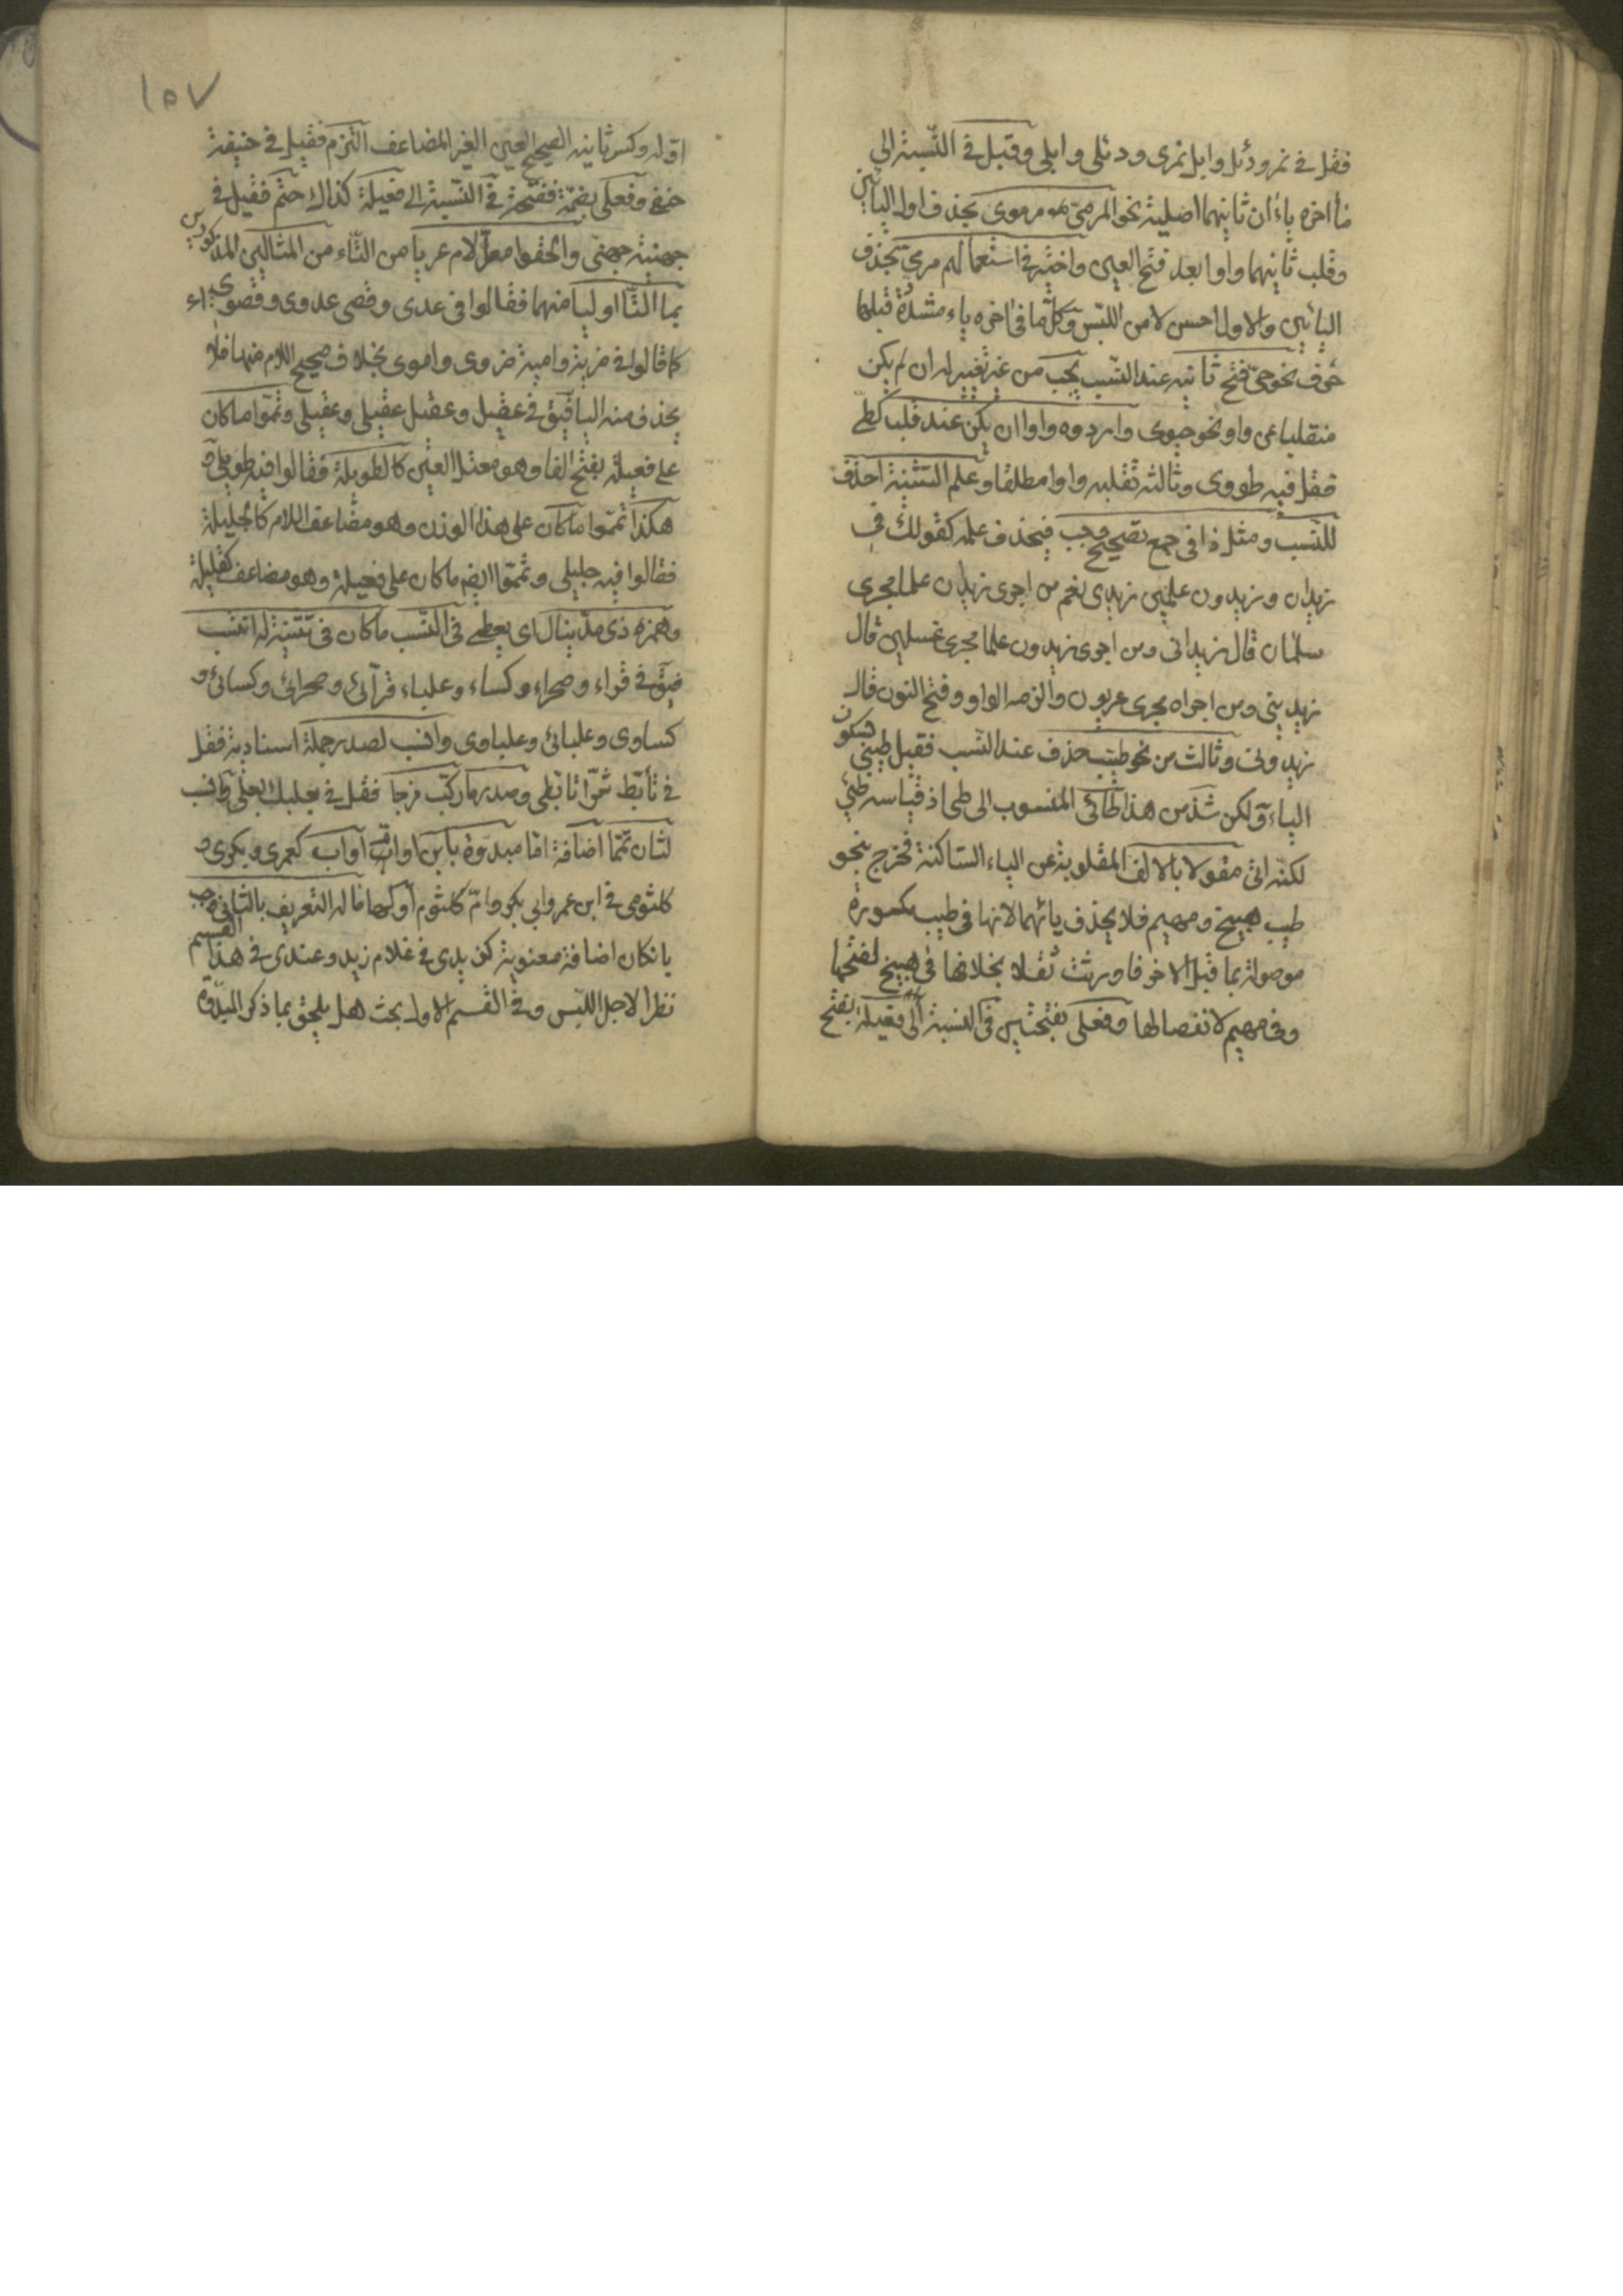 فقل في نمر ودئل وابل نمرى ودئلى وابلى وقيل في النسبة الى
ما آخره ياءان ثانيهما اصلية نحو المرمىّ مومرموى بحذف اول اليائين
وقلب ثانيهما واوا بعد فتح العين واختير في استعمالهم مرمىّ بحذف
اليائين والاول احسن لامن اللبس وكل ما في آخره ياء مشددة قبلها
حرف نحو حىّ فتح ثانيه عند النسب يجب من غير تغيير له ان لم يكن
منقلبا عن واو نحو حيوى واردده واوا ان يكن عنه قلب كطىّ
فقل فيه طووى وثالثه تقلبه واوا مطلقا وعلم التثنية احذف
للنسب ومثل ذا في جمع تصحيح وجب فيحذف علمه كقولك في
زيدان وزيدون علمين زيدى نعم من اجرى زيدان علما مجرى
سلمان قال زيدانى ومن اجرى زيدون علما مجرى غسلين قال
زيدينى ومن اجراه مجرى عربون والزمه الواو وفتح النون قال
زيدونى وثالث من نحو طيب حذف عند النسب فقيل طيبى بسكون
الياء ولكن شذ من هذا طائى المنسوب الى طى اذ قياسه طيئى
لكنه اتى مقولا بالالف المقلوبة عن الياء الساكنة فخرج بنحو
طيب هبيخ ومهيم فلا يحذف يائهما لانها في طيب مكسورة
موصولة بما قبل الآخر فاورثت ثقلا بخلافها في هبيخ لفتحها
وفي مهيم لانفصالها وفعلى بفتحتين في النسبة الى فعيلة بفتح
١٥٧
اوله وكسر ثانيه الصحيح العين الغير المضاعف التزم فقيل في حنيفة
حنفى وفعلى بضمة ففتحة في النسبة الى فعيلة كذاك حتم فقيل في
جهينة جهنى والحقوا معل لام عريا من التاء من المثالين المذكورين
بما التا اوليا منهما فقالوا في عدى وقصى عدوى وقصوى
كما قالوا في ضرية وامية ضروى واموى بخلاف صحيح اللام منهما فلا
يحذف منه اليا فيق في عقيل وعقيل عقيلى وعقيلى وتمموا ما كان
على فعيلة بفتح الفا وهو معتل العين كالطويلة فقالوا فيه طويلى و
هكذا تمموا ما كان على هذا الوزن وهو مضاعف اللام كالجليلة
فقالوا فيه جليلى وتمموا ايضم ما كان على فعيلة وهو مضاعف كقليلة
وهمزه ذى مد ينال اى يعطى في النسب ما كان في تثنية له انتسب
فيق في قراء وصحراء وكساء وعلباء قرآئى وصحرائى وكسائى و
كساوى وعلبائى وعلباوى وانسب لصدر جملة اسنادية فقل
في تأبط شرّا تأبطى وصدر ما ركب مزجا فقل في بعلبك بعلى وانسب
لثان تمما اضافة اما مبدوة بابن او اب آواب كعمرى وبكرى و
كلثومى في ابن عمر وابى بكر وام كلثوم او كها ما له التعريف بالثانى وجب
بان كان اضافة معنوية كزيدى في غلام زيد وعندى في هذا القسم
نظرا لاجل اللبس وفي القسم الاول بحث هل يلحق بما ذكر المبدوة